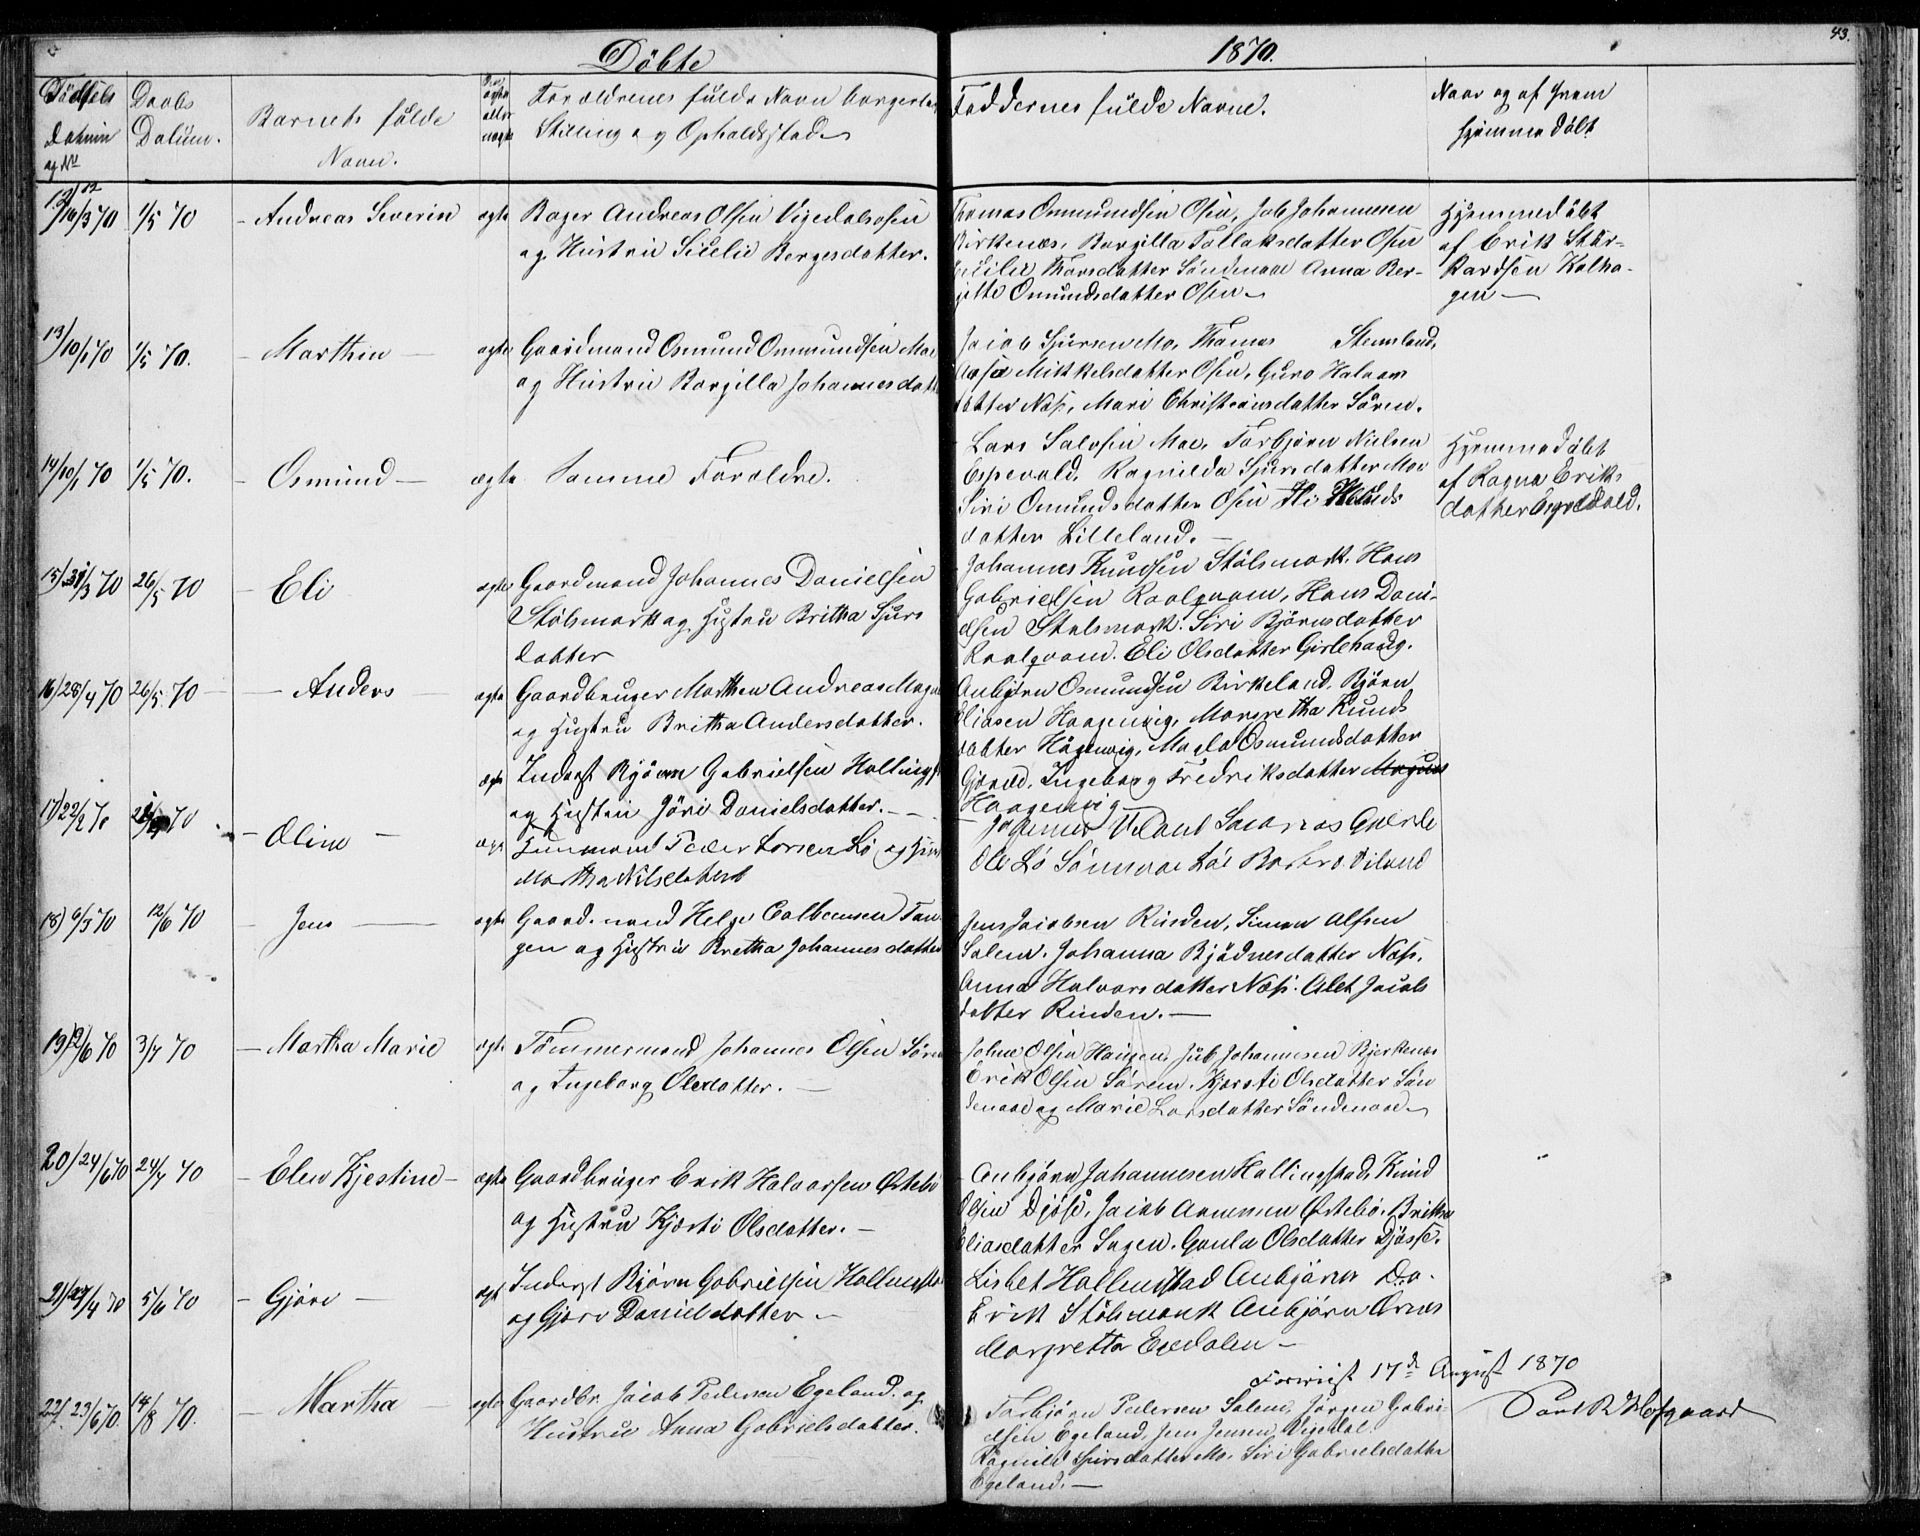 Döbte
1870.
43.
Födsels Datum og Nr
Daabs Datum.
Barnets fulde Navn.
ægte eller uægte
Forældrenes fulde Navn borgerlig Stilling og Opholdssted
Faddernes fulde Navne.
Naar og af hvem hjemmedöbt
12/ 16/3 70
1/5 70
– Andreas Severin
ægte
Bager Andreas Olsen Vigedalsosen
og Hustrue Sicelie Bergesdatter.
Thomas Osmundsen Osen, Job Johannesen
Birkenæs, Borgilla Tollaksdatter Osen
Sicilie Thorsdatter Söndenaae Anna Ber-
gitte Omundsdatter Osen
Hjemmedöbt
af Erik Stur-
kardsen Kolha-
gen
13/ 10/1 70
1/5 70.
– Marthin –
ægte
Gaardmand Osmund Osmundsen Moe
og Hustrue Borgilla Johannesdatt
Jacob Sjursen Mo, Thomas Stensland,
Aase Mikkelsdatter Osen, Guro Halvors
datter Næs, Mari Christensdatter Sören.
14/ 10/1 70
1/5 70.
– Osmund –
ægte
Samme Forældre.
Lars Salvesen Moe, Torbjörn Nielsen
Espevold, Ragnilda Sjursdatter Moe
Siri Omundsdatter Osen
datter Lilleland. –
Hjemmedöbt
af Ragna Eriks
datter Espevold.
15/ 31/3 70
26/5 70
– Eli
ægte
Gaardmand Johannes Danielsen
Stölsmark og Hustru Britha Sjurs
datter
Johannes Knudsen Stölsmark. Hans
Gabrielsen Raalqvam, Hans Dani-
elsen Stölsmark. Siri Björnsdatter
Raalqvam. Eli Olsdatter Girlehaug.
16/ 28/4 70
26/5 70
– Anders –
ægte
Gaardbruger Marthen Andreas
og Hustru Britha Andersdatter.
Anbjörn Osmundsen Birkeland, Björn
Eliasen Haagenvig, Margretha Knuds
datter Hågenvig, Magla Osmundsdatter
Ingeborg Fredriksdatter
Haagenvig
ægte
Inderst Björn Gabrielsen Hallingst
og Hustru Jöri Danielsdatter. –
17/ 22/2 70
70
– Oline –
ægte
Huusmand Peder Larsen Lö og Hust
Martha Nilsdatter
Veland Gjerde
Ole Lö Veland
18) 6/3 70
12/6 70
Jens –
ægte
Gaardmand Helge Colbensen Tan-
gen og Hustrue Bretha Johannesdatter
Jens Jacobsen Rinden, Simon Alfsen
Salem. Johanna Bjödnesdatter Næs.
Anna Halvorsdatter Næs. Alet Jacobs
datter Rinden. –
19/ 12/6 70
3/7 70
– Martha Marie
ægte
Tömmermand Johannes Olsen Sören
og Ingeborg Olesdatter. –
Johne Olsen Haugen, Job Johannesen Bjerkenæs
Erik Olsen Sörem. Kjersti Olsdatter Sön
denaae og Marie Larsdatter Söndenaae.
20/ 24/6 70
24/7 70
– Elen Kjestine –
ægte
Gaardbruger Erik Halvorsen Östebö
og Hustru Kjærsti Olsdatter. –
– Anbjörn Johannesen Hallingstad, Knud
Olsen Djöse, Jacob Östebö. Britha
Eliasdatter Sagen. Gonla Olsdatter Djösse.
21/ 27/4 70
5/6 70
– Gjöre –
ægt
Inderst Björn Gabrielsen Hallingsta
og Gjöro Danieldatter –
Lisbet Hallingstad Anbjörn Do.
Erik Stölsmark Anbjörn Örnes
Margretta Egedalen –
22/ 23/6 70.
14/8 70.
– Martha –
ægte
Gaardbr. Jacob Pedersen Egeland. og
Hustrue Anna Gabrielsdatter.
Forviist 17de August 1870
Torbjörn Pedersen Salem, Jörgen Gabri-
elsen Egeland, Jens Jensen Vigedal
Ragnild Sjursdatter Mo. Siri Gabrielsdatter
Egeland. –